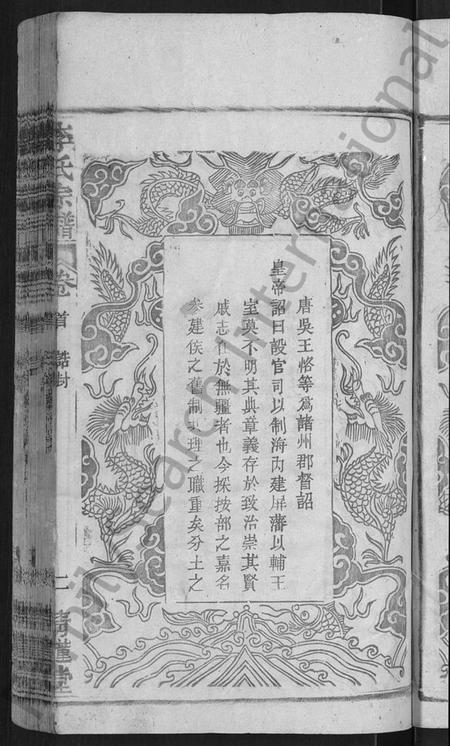 唐吳王恪等爲諸州郡督詔
皇帝詔曰設官司以制海內建屏藩以輔王
室莫不明其典章義存於致治崇其賢
戚志在於無疆者也今採按部之嘉名
參建侯之舊制共理之職重矣分土之
李氏宗譜
卷首 誥封
二